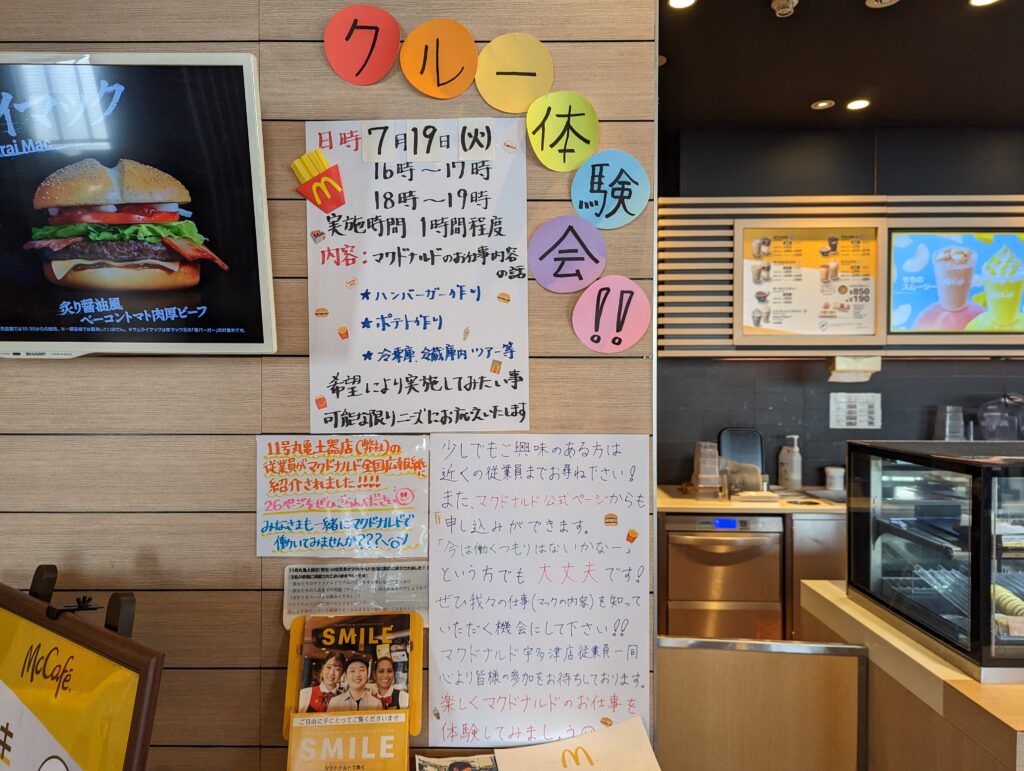 クルー体験会!!
日時 7月19日(火)
16時～17時
18時～19時
実施時間 1時間程度
内容:マクドナルドのお仕事内容
の話
★ハンバーガー作り
★ポテト作り
★冷凍庫、冷蔵庫内ツアー等
希望により実施してみたい事
可能な限りニーズにお応えいたします
イマック
rai Mac
炙り醤油風
ベーコントマト肉厚ビーフ
SHARP
11号丸亀土器店(弊社)の
従業員がマクドナルド全国広報紙に
紹介されました!!!!
26ページをぜひごらんください
みなさまも一緒にマクドナルドで
働いてみませんか???
少しでもご興味のある方は
近くの従業員までお尋ね下さい!
また、マクドナルド公式ページからも
申し込みができます。
「今は働くつもりはないかなー」
という方でも 大丈夫です!
ぜひ我々の仕事(マックの内容)を知って
いただく機会にして下さい!!
マクドナルド宇多津店従業員一同
心より皆様の参加をお待ちしております。
楽しくマクドナルドのお仕事を
体験してみましょう
SMILE
ご自由に手にとってご覧くださいませ
SMILE
マクドナルドで働く
McCafé
¥850
¥190
ももの
スムージー